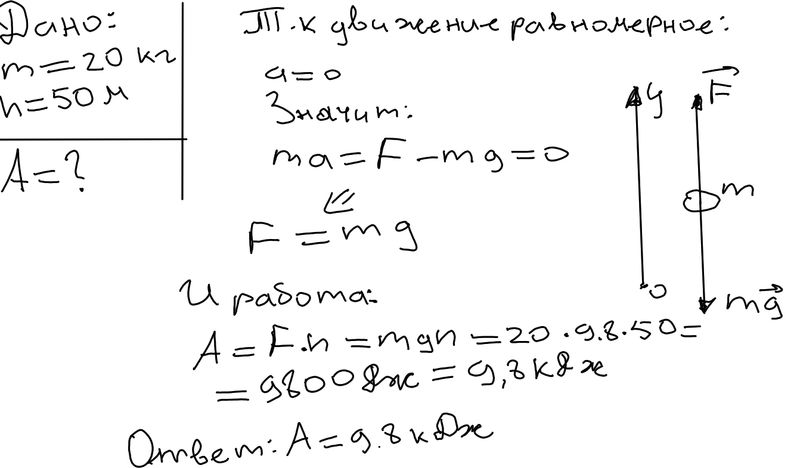 Дано:
m = 20 кг
h = 50 м
A = ?
Т.к движение равномерное:
a = 0
Значит:
ma = F - mg = 0
⇙
F = mg
И работа:
A = F·h = mgh = 20·9.8·50 =
= 9800 Дж = 9,8 кДж
Ответ: A = 9.8 кДж
y
F⃗
m
0
mg⃗